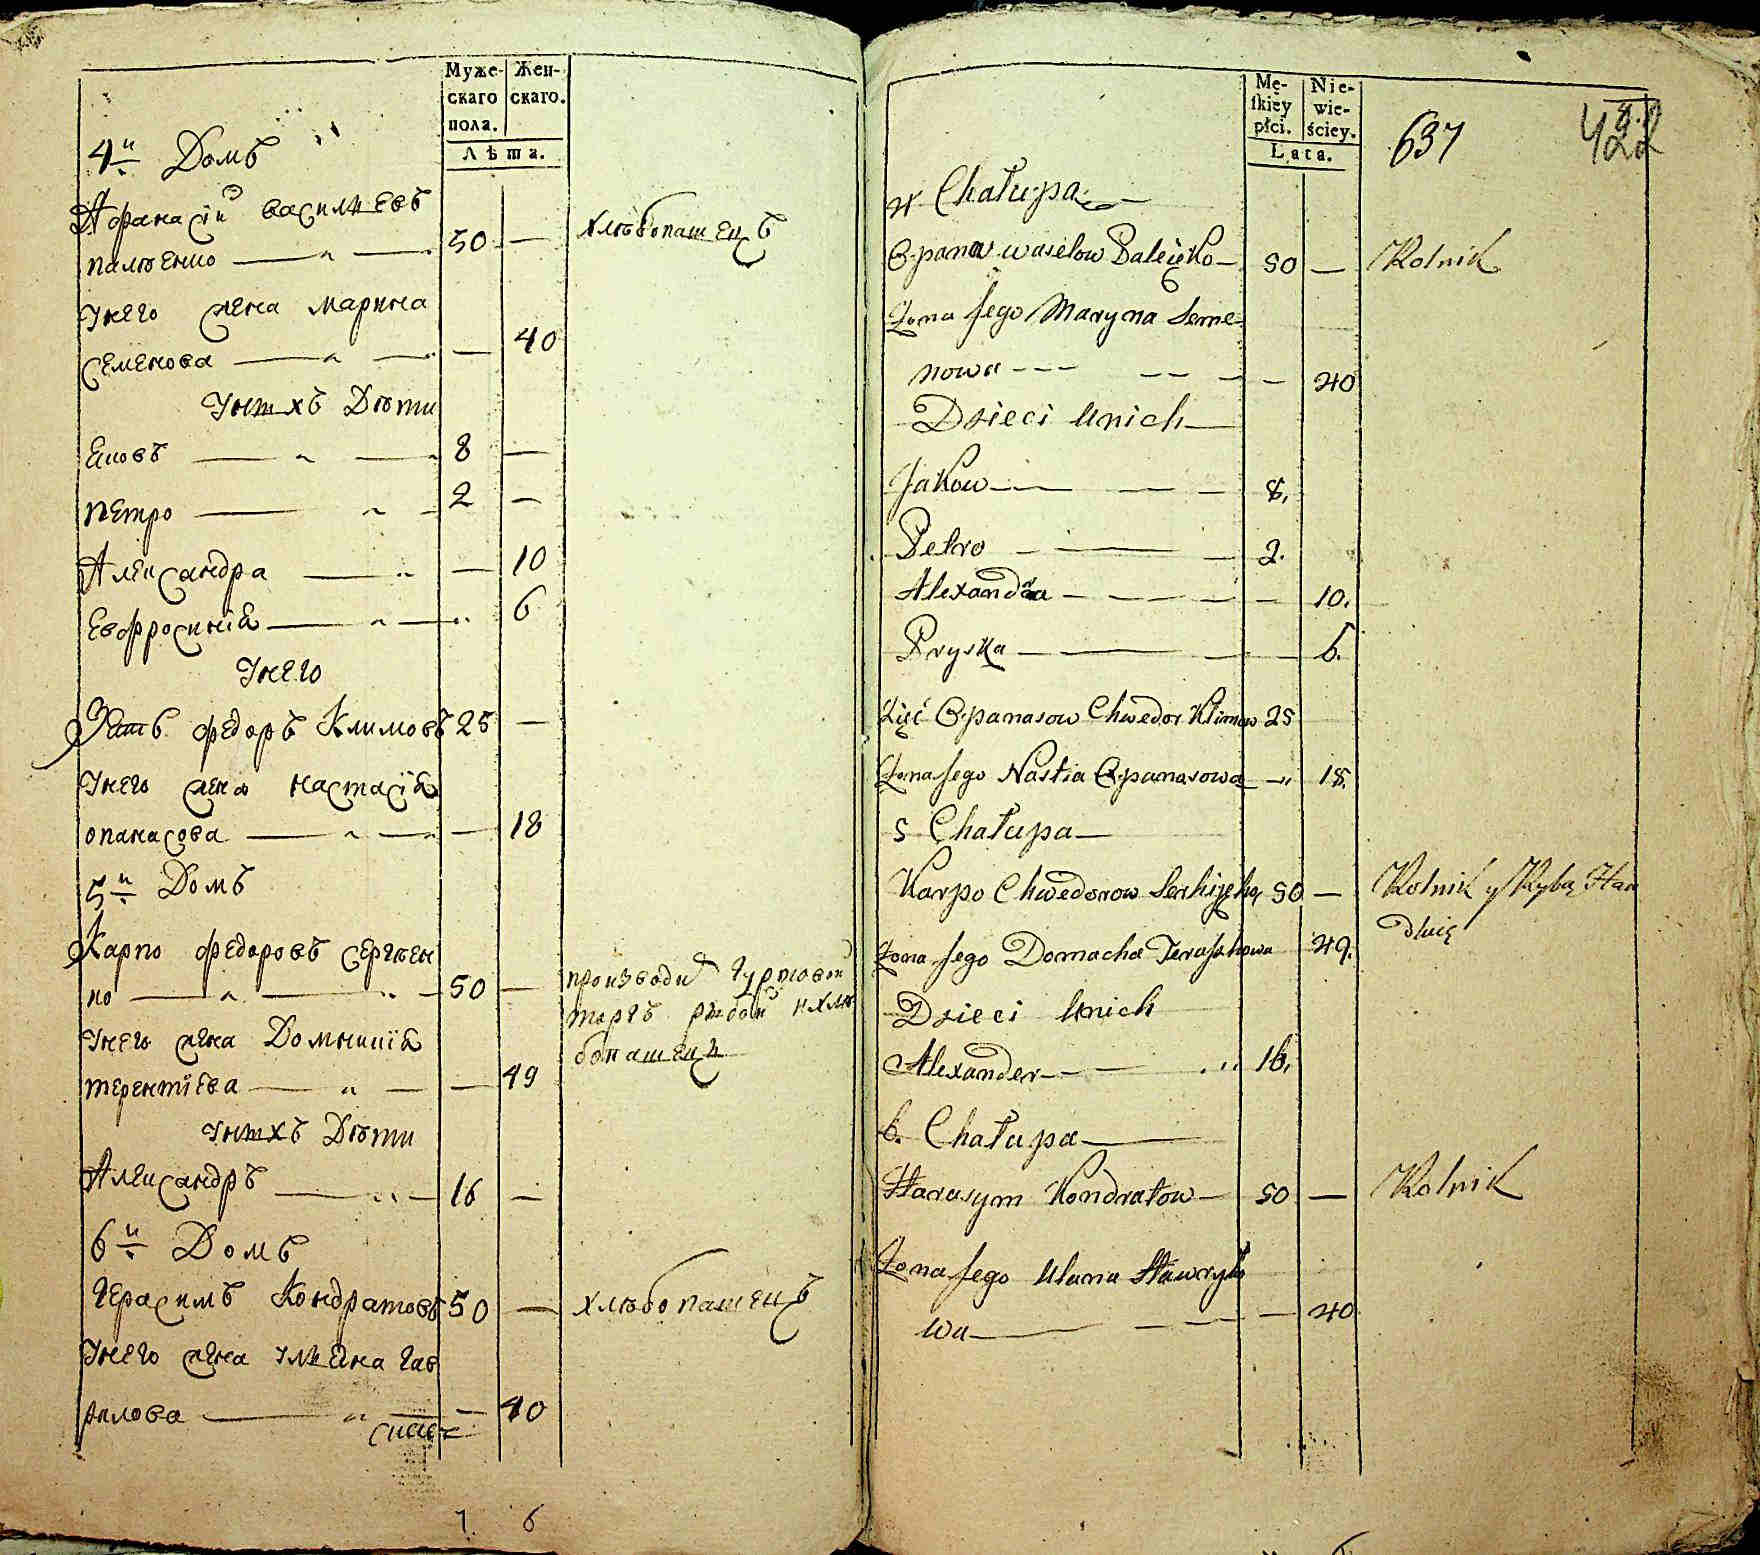 Муже- Жен-
скаго скаго.
пола.
Лѣта.
4й Домъ
Афанасій василиевъ
палѣенко — „ — 50 — хлѣбопашецъ
Унего жена марина
семенова — „ — — 40
Унихъ Дѣти
Яковъ — „ — 8 —
петро — „ — 2 —
Александра — „ — 10
Евфросиніа — „ — „ 6
Унего
Зять федоръ Климовъ 25 —
Унего жена настасіа
опанасова — „ — — 18
5й Домъ
Карпо федоровъ сергѣен
ко — „ — „ — 50 — производи гуртовой
торгъ рыбой и хлѣ
бопашецъ
Унего жена Домникіа
терентіева — „ — — 49
Унихъ Дѣти
Александръ — „ — 16 —
6й Домъ
Герасимъ Кондратовъ 50 — хлѣбопашецъ
Унего жена ульяна гав
рилова — „ — — 40
7. 6
Mę- Nie-
skiey wie-
płci. ściey.
Lata.
637
4 Chałupa —
Opanas wasilow Paleięko — 50 — Rolnik
Żona Jego Maryna Seme-
nowa - - - — 40
Dzieci Unich —
Jakow — 8.
Petro — 2.
Alexandra — — 10.
Pryska — — 6.
Zięć Opanasow Chwedor Klimow 25
Żona Jego Nastia Opanasowa — „ 18.
5 Chałupa —
Karpo Chwedorow Serhijęko 50 — Rolnik y Rybą Han
dluię
Żona Jego Domacha Teraszkowa 49.
Dzieci Unich
Alexander — „ 16.
6. Chałupa —
Harasym Kondratow — 50 — Rolnik
Żona Jego Ulana Hawryło
wa — — 40